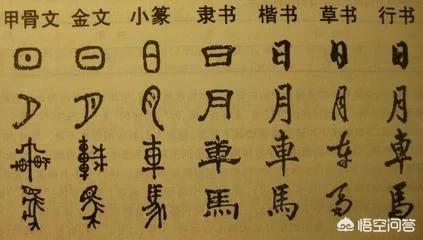 甲骨文 金文 小篆 隶书 楷书 草书 行书
日 日 日 日 日 日 日
月 月 月 月 月 月 月
車 車 車 車 車 車 車
馬 馬 馬 馬 馬 馬 馬
悟空问答